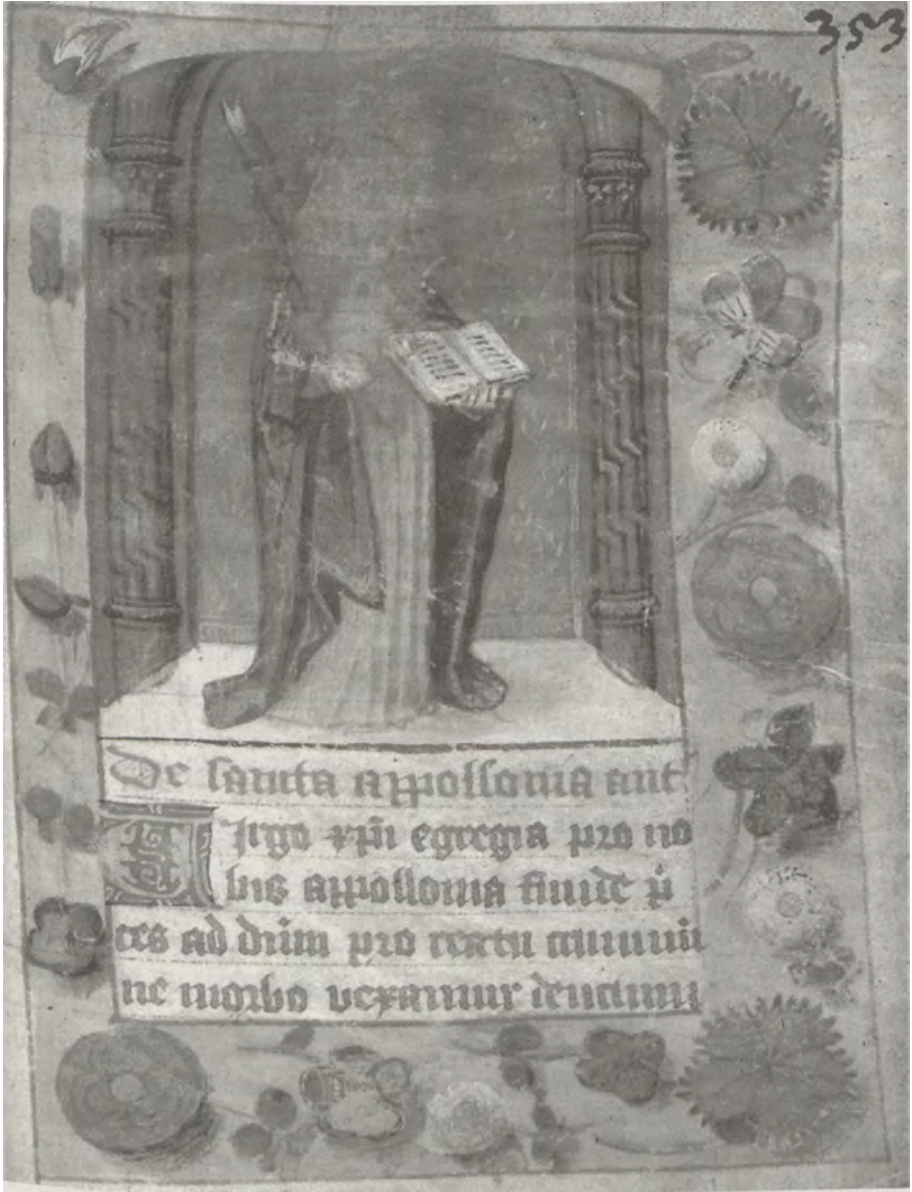 353
De sancta appollonia ant
Virgo xpi egregia pro no
bis appollonia funde p
ces ad dnm pro reatu criminū
ne morbo vexamur dentium